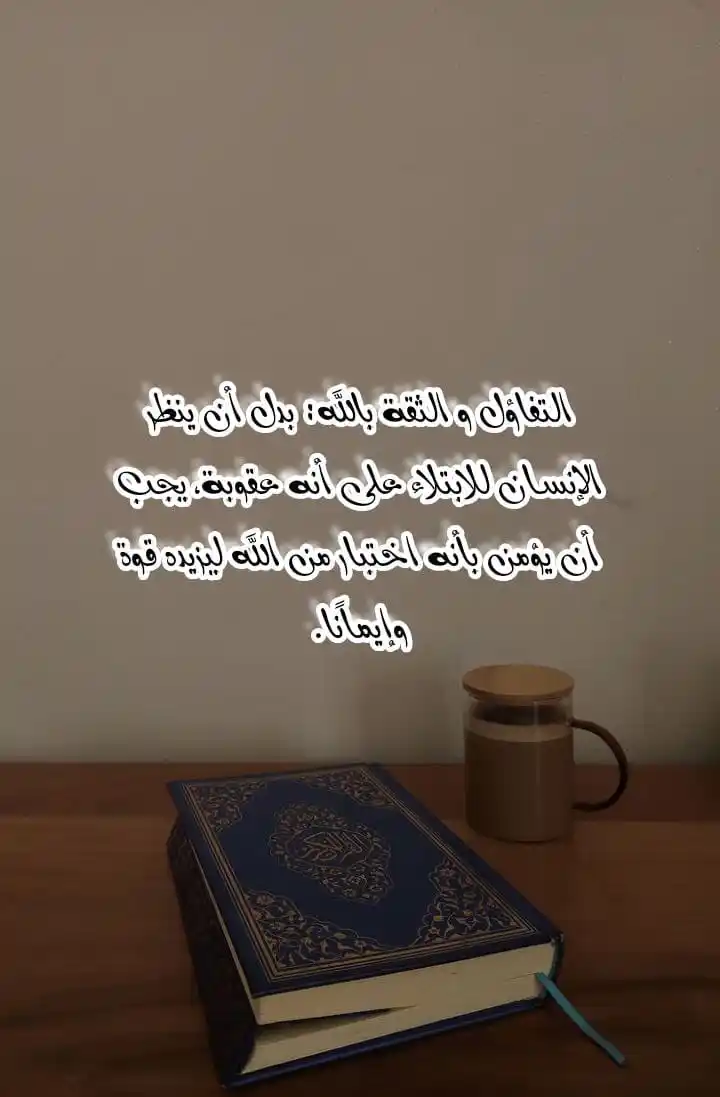 التفاؤل و الثقة بالله: بدل أن ينظر
الإنسان للابتلاء على أنه عقوبة، يجب
أن يؤمن بأنه اختبار من الله ليزيده قوة
وإيمانًا.